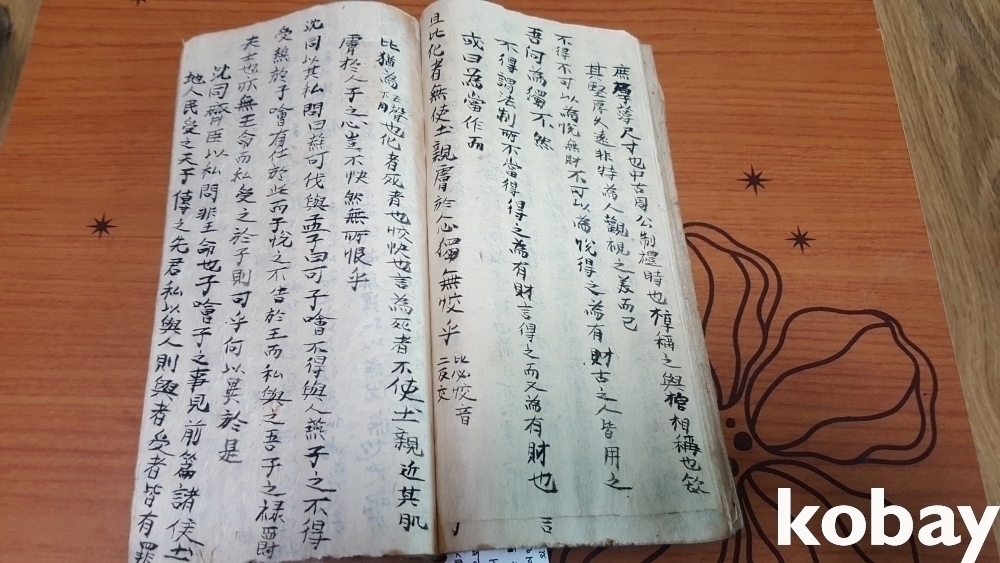 厚薄尺寸也中古周公制禮時也椁稱之與棺相稱也欤
其堅厚久遠非特為人觀視之美而已
不得不可以為悅無財不可以為悅得之為有財古之人皆用之
吾何為獨不然
不得謂法制所不當得得之為有財言得之而又為有財也
或曰為當作而
且比化者無使土親膚於人心獨無恔乎 比必恔音
二反交
比猶為也化者死者也恔快也言為死者不使土親近其肌
膚於人子之心豈不快然無所恨乎
沈同以其私問曰燕可伐與孟子曰可子噲不得與人燕子之不得
受燕於子噲有仕於此而子悅之不告於王而私與之吾子之祿爵
夫士也亦無王命而私受之於子則可乎何以異於是
沈同齊臣以私問非王命也子噲子之事見前篇諸侯土
地人民受之天子傳之先君私以與人則與者受者皆有罪
kobay